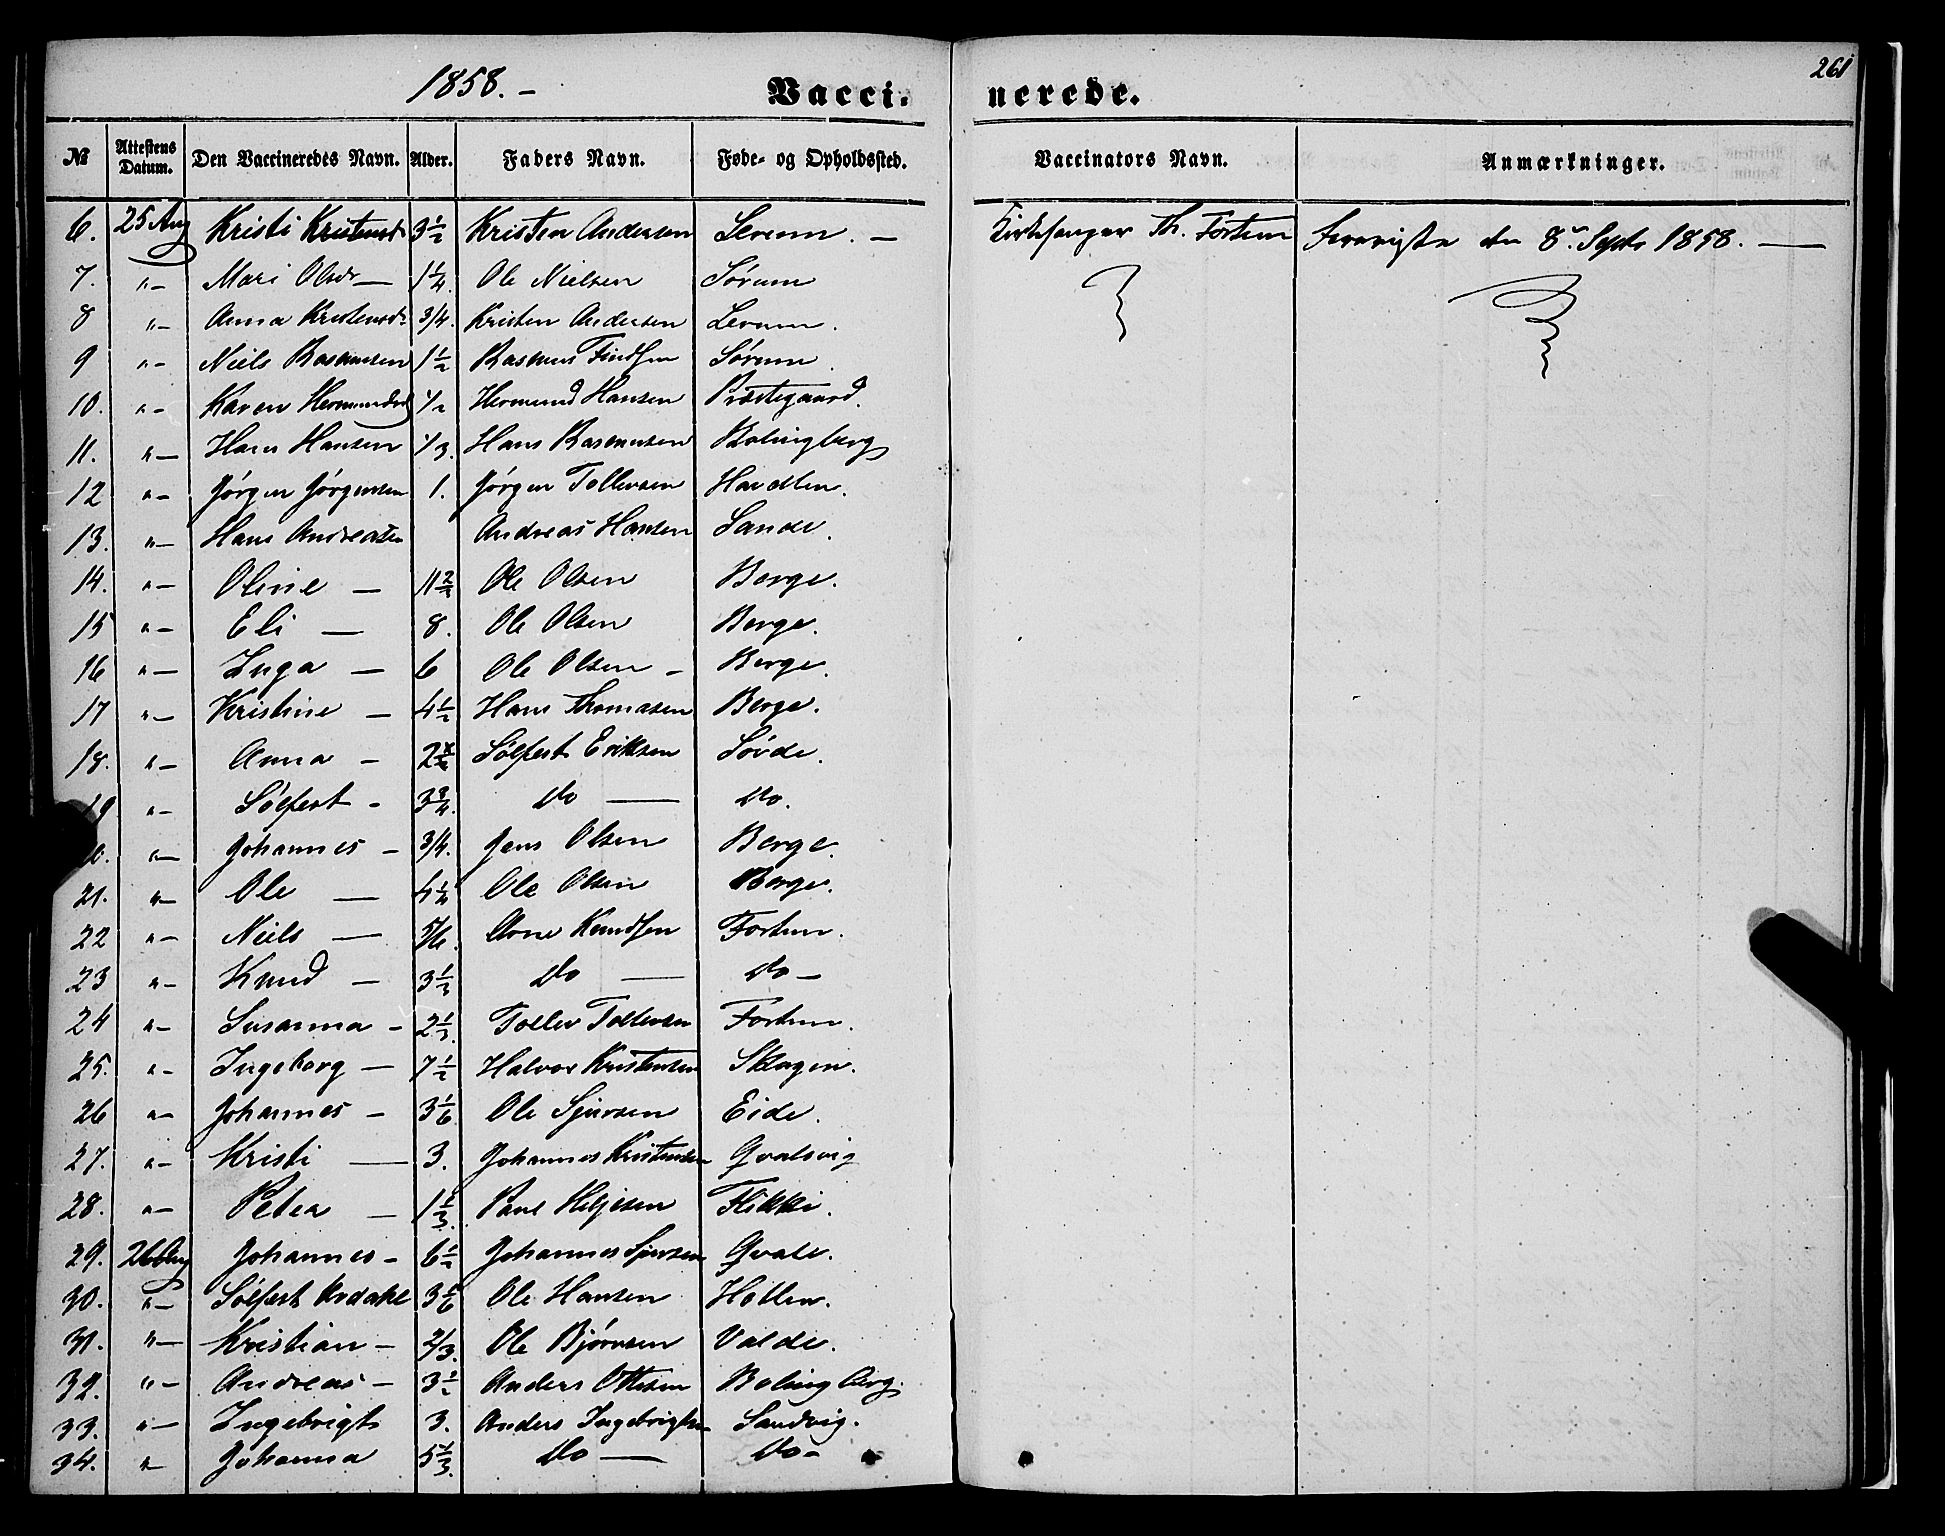 261
1858. -
Vacci- nerede.
№ Attestens Datum. Den Vaccineredes Navn. Alder. Faders Navn. Føde- og Opholdssted. Vaccinators Navn. Anmærkninger.
6. 25 Aug Kristi Kristensd. 3 1/2 Kristen Andersen — Kirkesanger Th. Fortun den 8de Septr 1858. —
7. "- Mari Olsdr — 1 1/4. Ole Nielsen Sørum
8 "- Anna Kristensdr 3/4. Kristen Andersen
9 "- Niels Rasmussen 1 1/2 Rasmus Findsen Sørum.
10. "- Karen Hermundsd 1/2 Hermund Hansen Præstegaard.
11. "- Hans Hansen 1/3. Hans Rasmussen Bolingberg
12 "- Jørgen Jørgensen 1. Jørgen Tollevsen
13. "- Hans Andreasen Andreas Hansen Sande.
14. "- Oline — 11 2/3 Ole Olsen Berge.
15 "- Eli — 8. Ole Olsen Berge.
16 "- Inga — 6 Ole Olsen - Berge.
17 "- Kristine — 4 1/2 Hans Thomasen Berge.
18. "- Anna - 2 Sølfest Eriksen Søvde.
19 "- Sølfest - 3 3/4. do — do.
"- Johannes - 3/4. Jens Olsen Berge.
21. "- Ole — 4 1/4 Ole Olsen Berge.
22 "- Niels — 5/6. Arne Knudsen Fortun.
23 "- Knud — 3 1/3 do — do -
24 "- Susanna - 2 1/3. Tollev Tollevsen Fortun.
25. "- Ingeborg — 7 1/2 Halvor Kristensen Skagen.
26 "- Johannes - 3 1/6 Ole Sjursen Eide.
27. "- Kristi — 3. Johannes Kristensen Qvalsvig
28. "- Peter — 1 1/3. Paul Heljesen Flikki.
29. 26 Aug Johannes - 6 1/2 Johannes Sjursen Qvale.
30. "- Sølfest Ardahl 3 5/6 Ole Hansen
31. "- Kristian - 2/3. Ole Bjørnsen Valde.
32. "- Andreas - 3 1/2 Anders Ottesen Bolingberg.
33. "- Ingebrigt 3. Anders Ingebrigtsen Sandvig.
34. "- Johanna 5 1/3. do — do -